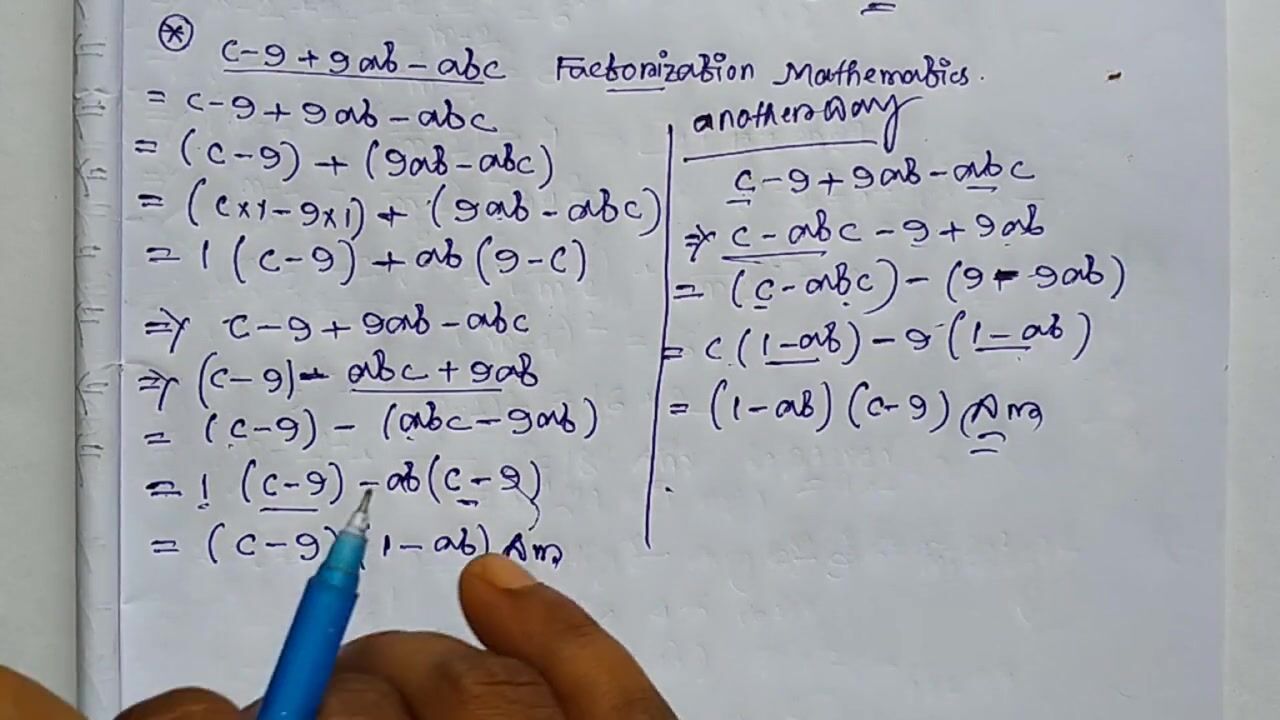 * c-9+9ab-abc Factorization Mathematics.
= c-9+9ab-abc
= (c-9) + (9ab-abc)
= (c×1-9×1) + (9ab-abc)
= 1(c-9)+ab(9-c)
⇒ c-9+9ab-abc
⇒ (c-9)-abc+9ab
= (c-9) - (abc-9ab)
= 1(c-9)-ab(c-9)
= (c-9)(1-ab) Ans
another way
c-9+9ab-abc
⇒ c-abc-9+9ab
= (c-abc)-(9-9ab)
= c(1-ab)-9(1-ab)
= (1-ab)(c-9) Ans